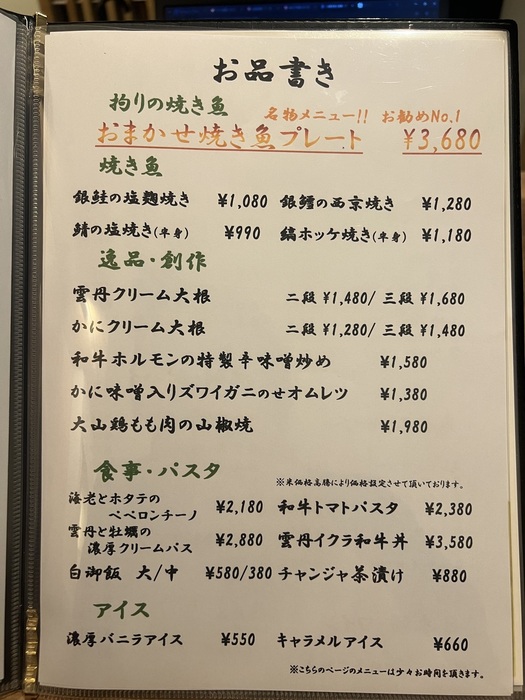 お品書き
拘りの焼き魚 名物メニュー!! お勧めNo.1
おまかせ焼き魚プレート ¥3,680
焼き魚
銀鮭の塩麹焼き ¥1,080 銀鱈の西京焼き ¥1,280
鯖の塩焼き(半身) ¥990 縞ホッケ焼き(半身) ¥1,180
逸品・創作
雲丹クリーム大根 二段 ¥1,480/ 三段 ¥1,680
かにクリーム大根 二段 ¥1,280/ 三段 ¥1,480
和牛ホルモンの特製辛味噌炒め ¥1,580
かに味噌入りズワイガニのせオムレツ ¥1,380
大山鶏もも肉の山椒焼 ¥1,980
食事・パスタ ※米価格高騰により価格設定させて頂いております。
海老とホタテの
ペペロンチーノ ¥2,180 和牛トマトパスタ ¥2,380
雲丹と牡蠣の
濃厚クリームパスタ ¥2,880 雲丹イクラ和牛丼 ¥3,580
白御飯 大/中 ¥580/380 チャンジャ茶漬け ¥880
アイス
濃厚バニラアイス ¥550 キャラメルアイス ¥660
※こちらのページのメニューは少々お時間を頂きます。